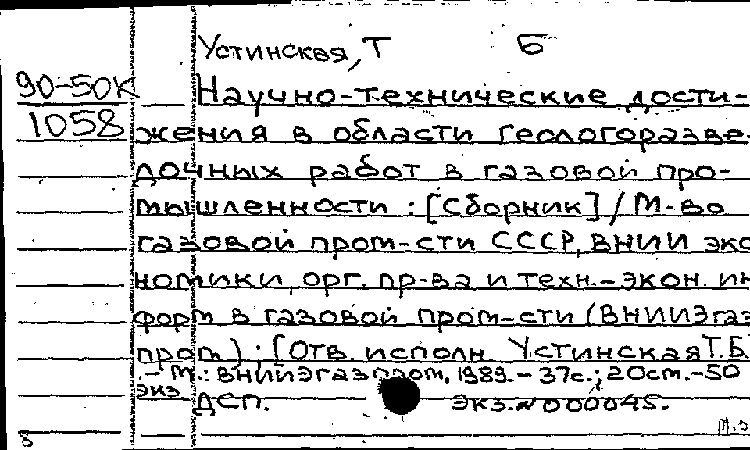 Устинская, Т Б
90-50К
1058
Научно-технические дости-
жения в области геологоразве-
дочных работ в газовой про-
мышленности : [Сборник] / М-во
газовой пром-сти СССР, ВНИИ эко
номики, орг. пр-ва и техн.-экон. ин
форм в газовой пром-сти (ВНИИЭгаз
пром) ; [Отв. исполн Устинская Т.Б
.- М.: ВНИИЭгазпром, 1989.- 37с.; 20см.-50
экз. ДСП. Экз.№000045.